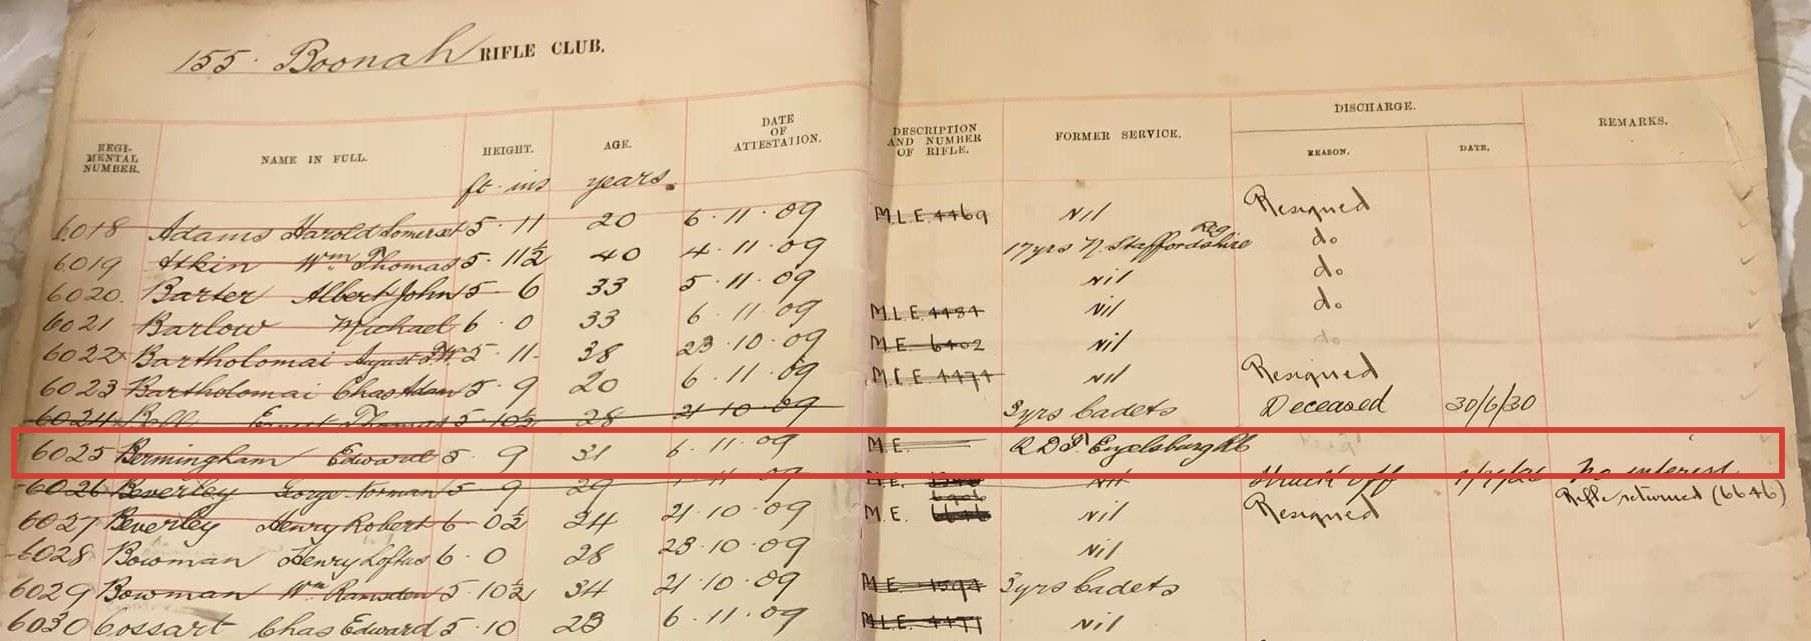 155. Boonah RIFLE CLUB.
REGI-MENTAL NUMBER. NAME IN FULL. HEIGHT. AGE. DATE OF ATTESTATION. DESCRIPTION AND NUMBER OF RIFLE. FORMER SERVICE. DISCHARGE. REASON. DATE. REMARKS.
ft. ins years.
6018 Adams Harold Somerset 5. 11 20 6. 11. 09 M.L.E. 4469 Nil Resigned
6019 Atkin Wm Thomas 5. 11½ 40 4. 11. 09 17yrs N. Staffordshire Reg do.
6020. Barter Albert John 5. 6 33 5. 11. 09 Nil do.
6021 Barlow Michael 6. 0 33 6. 11. 09 M.L.E. 4484 Nil do.
6022 Bartholomai August 5. 11. 38 23. 10. 09 M.E. 6402 Nil do
6023 Bartholomai Chas Adam 5. 9 20 6. 11. 09 M.L.E. 4474 Nil Resigned
6024 Bell Ernest Thomas 5. 10½ 28 21 10. 09 3yrs Cadets Deceased 30/6/30
6025 Bermingham Edward 5. 9 31 6. 11. 09 M.E.
6026 Beverley George Norman 5 9 29 09 M.E. Nil Struck off No interest
6027 Beverley Henry Robert 6. 0½ 24 21. 10. 09 M.E. 6646 Nil Resigned Rifle returned (6646)
6028 Bowman Henry Loftus 6. 0 28 23. 10. 09 Nil
6029 Bowman Wm Ramsden 5. 10½ 34 21. 10. 09 M.E. 1594 3yrs Cadets
6030 Cossart Chas Edward 5. 10 23 6. 11. 09 M.L.E. 4477 Nil